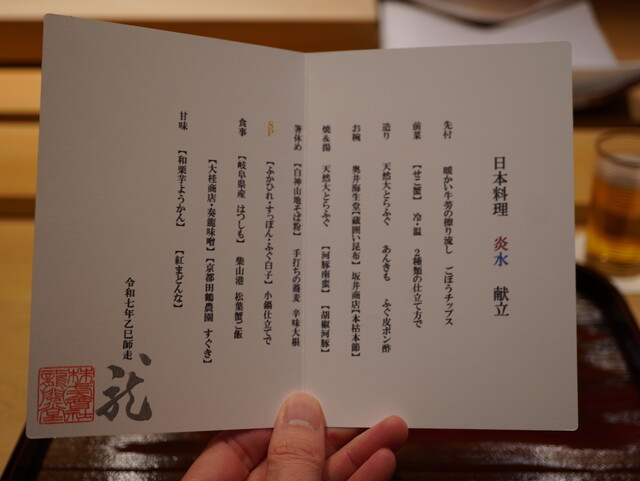 日本料理 炎水 献立
先付 暖かい牛蒡の擦り流し ごぼうチップス
前菜 【せこ蟹】 冷・温 2種類の仕立て方で
造り 天然大とらふぐ あんきも ふぐ皮ポン酢
お椀 奥井海生堂【蔵囲い昆布】 坂井商店【本枯本節】
焼&揚 天然大とらふぐ 【河豚南蛮】 【胡椒河豚】
箸休め 【白神山地そば粉】 手打ちの蕎麦 辛味大根
SP 【ふかひれ・すっぽん・ふぐ白子】 小鍋仕立てで
食事 【岐阜県産 はつしも】 柴山港 松葉蟹ご飯
【大桂商店・奏龍味噌】【京都田鶴農園 すぐき】
甘味 【和栗芋ようかん】 【紅まどんな】
令和七年乙巳師走
龍